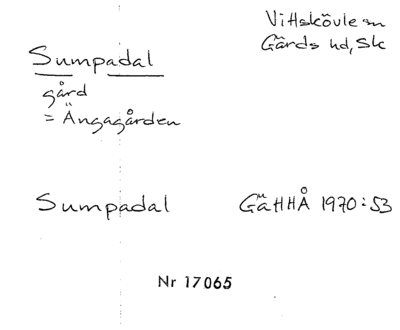 Vittskövle sn
Gärds hd, Sk
Sumpadal
gård
= Ängagården
Sumpadal GäHHÅ 1970:53
Nr 17065